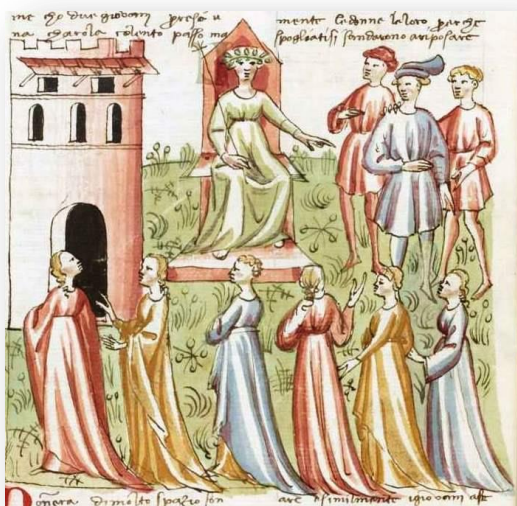 me cho due giovani preso u
na charola colento passo ma
mente ledonne laloro parche
spogloatisi sandarono ariposare
oñera dimolto spazio son
are esimilmente igiovani